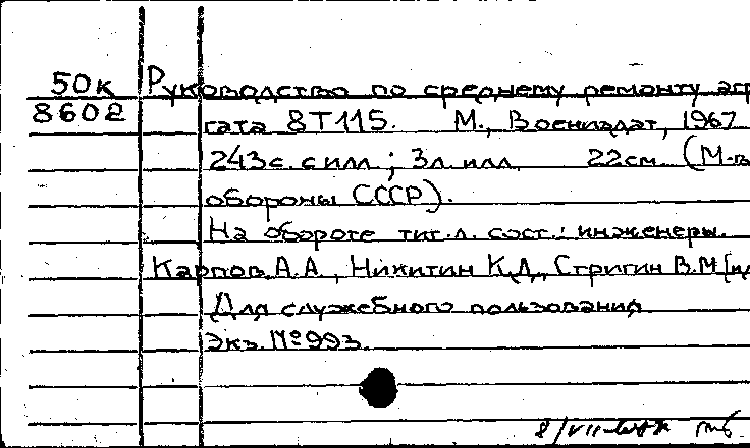 50к Руководство по среднему ремонту агр
8602 гата 8Т115. М., Воениздат, 1967
243с. с илл.; 3л. илл. 22см. (М-в
обороны СССР).
На обороте тит. л. сост.: инженеры.
Карпов А.А., Никитин К.Д., Стригин В.М [и
Для служебного пользования
Экз. №993.